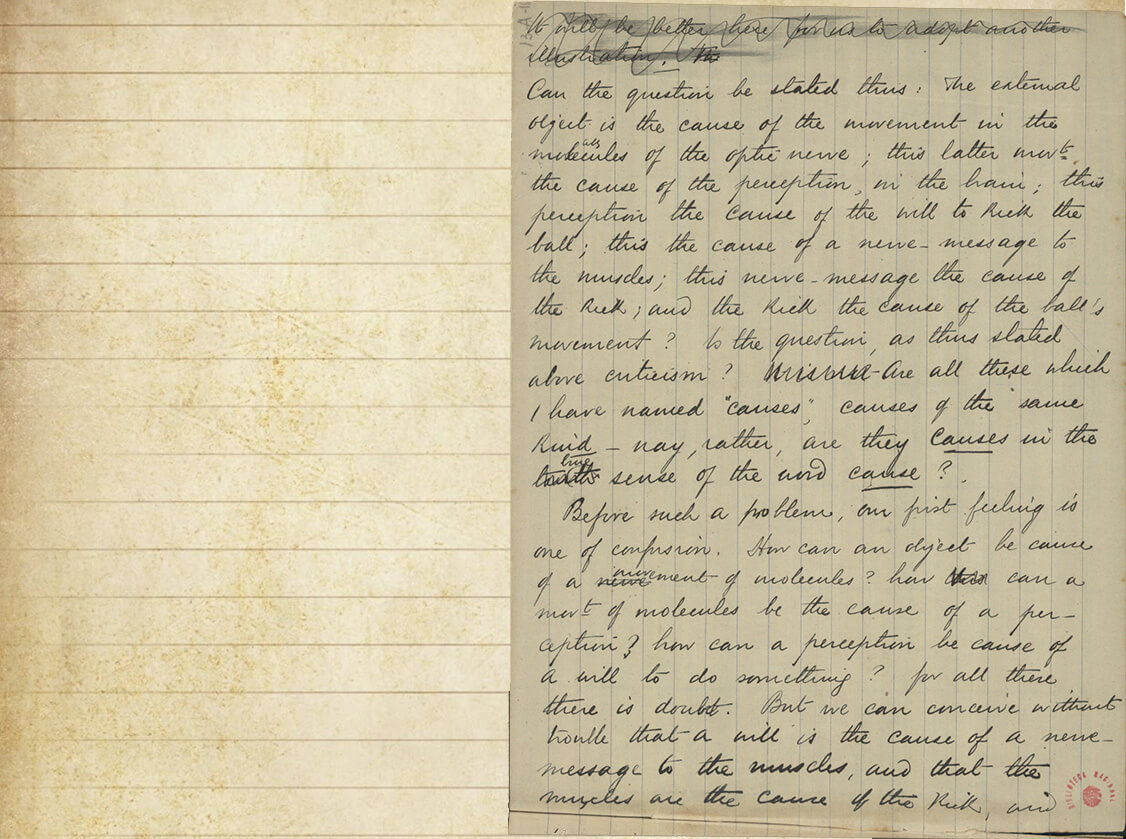 It will be better here for us to adopt another
illustration. The
Can the question be stated thus: The external
object is the cause of the movement in the
molecules of the optic nerve; this latter movt.
the cause of the perception, in the brain; this
perception the cause of the will to kick the
ball; this the cause of a nerve-message to
the muscles; this nerve-message the cause of
the kick; and the kick the cause of the ball's
movement? Is the question, as thus stated
above criticism? Are all these which
I have named "causes", causes of the same
kind – nay, rather, are they causes in the
true sense of the word cause?
Before such a problem, our first feeling is
one of confusion. How can an object be cause
of a movement of molecules? how can a
movt of molecules be the cause of a per-
ception? how can a perception be cause of
a will to do something? for all these
there is doubt. But we can conceive without
trouble that a will is the cause of a nerve-
message to the muscles, and that the
muscles are the cause of the kick, and
BIBLIOTECA NACIONAL